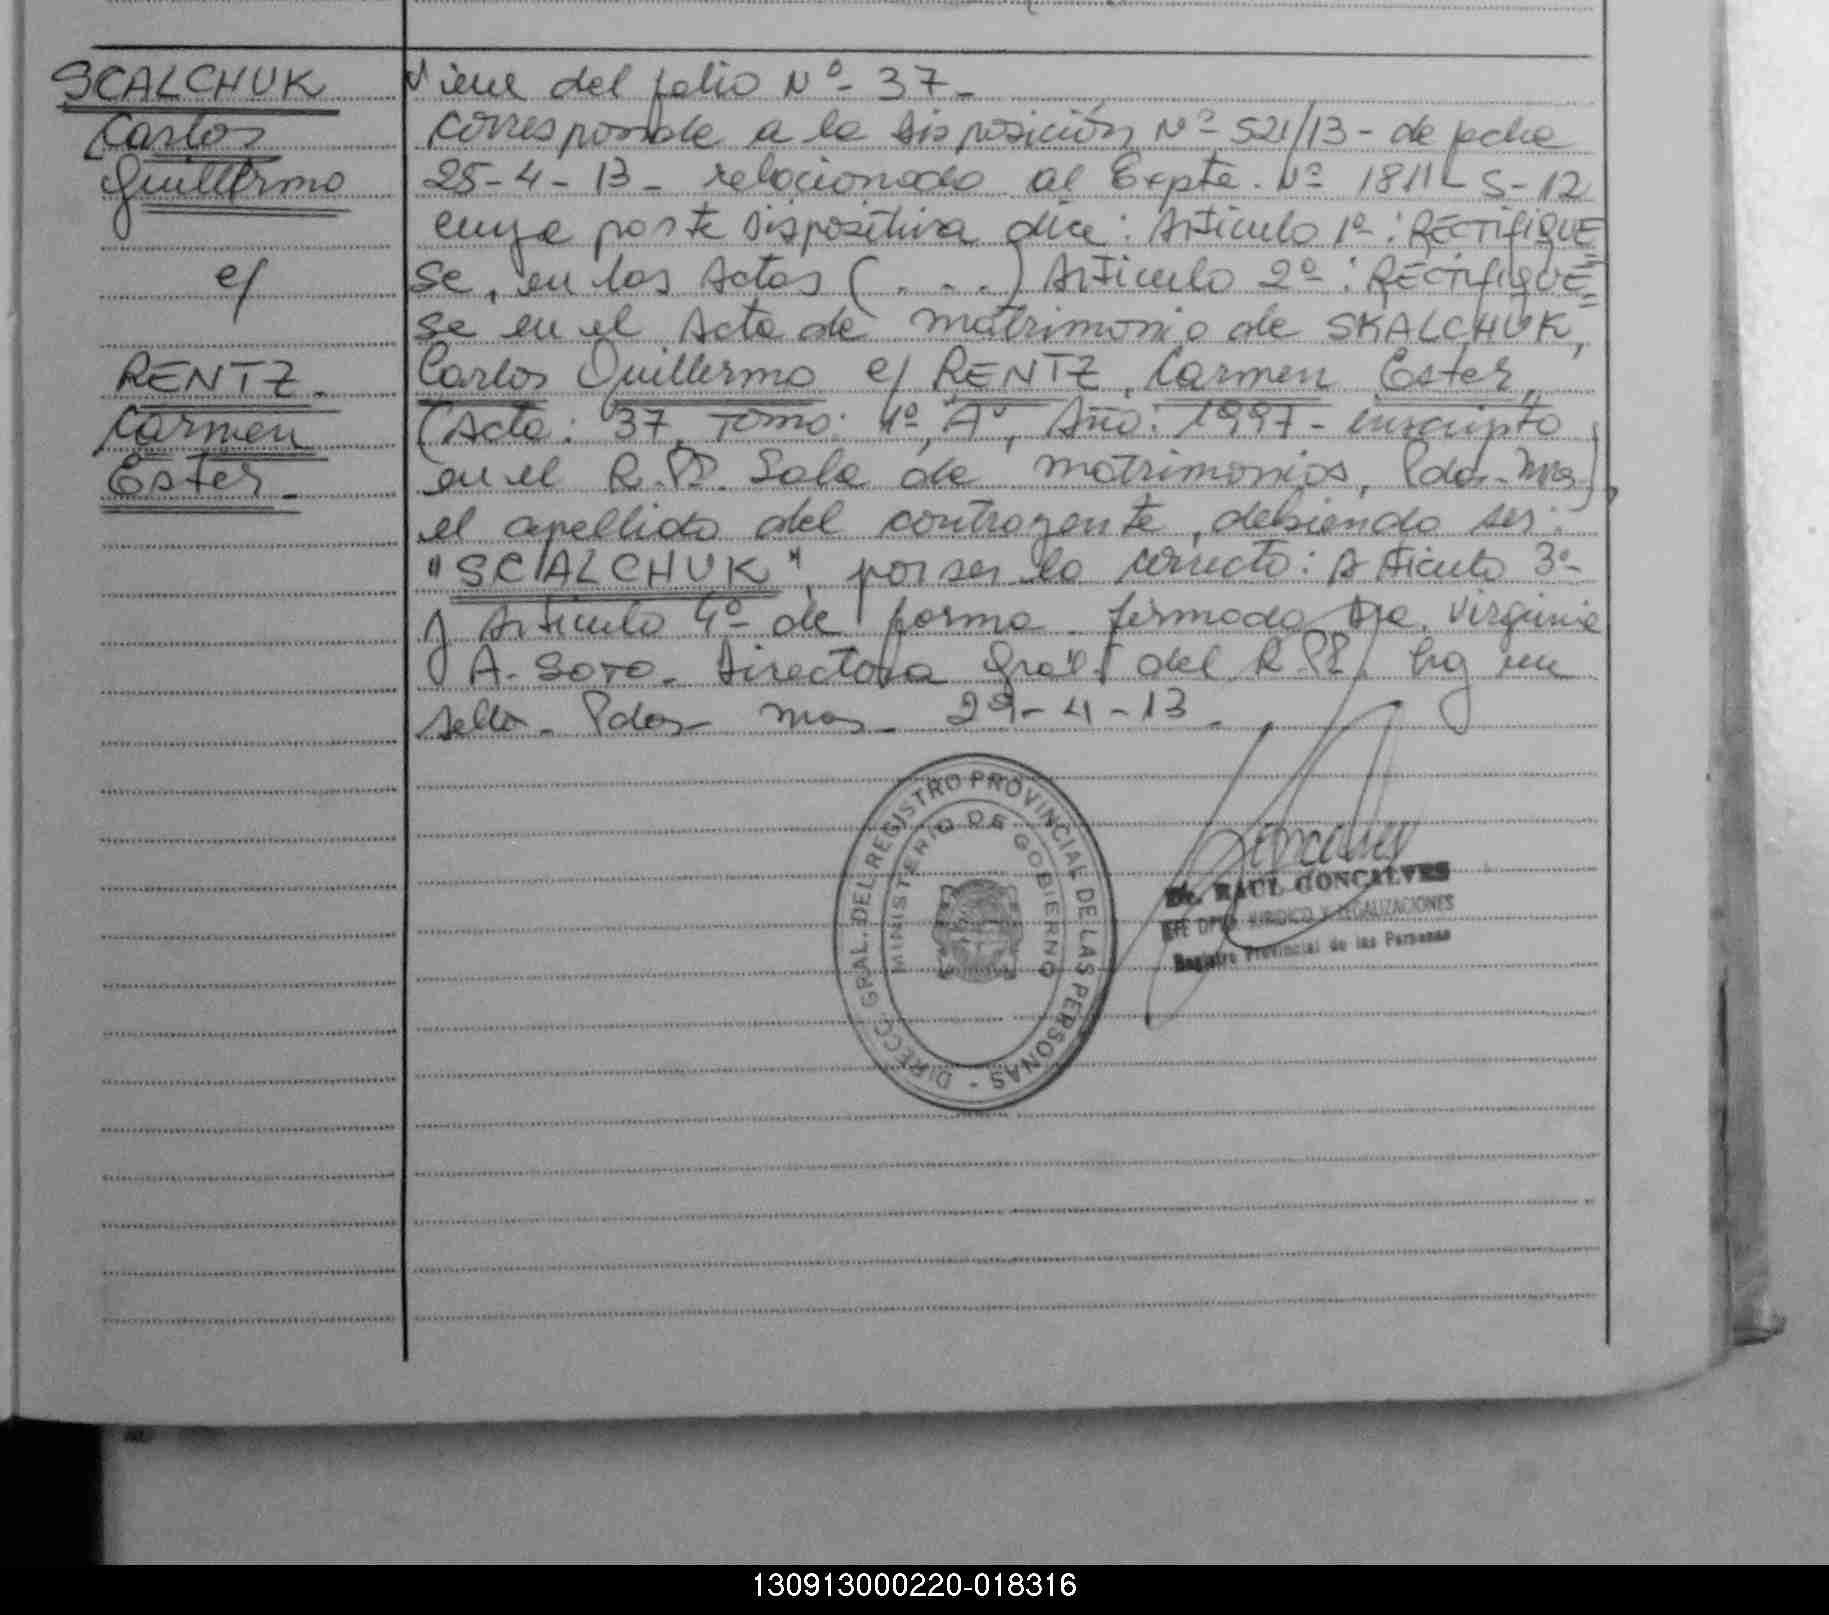 SCALCHUK
Carlos
Guillermo
c/
RENTZ.
Carmen
Ester.-
Viene del folio Nº- 37-
Corresponde a la Disposición Nº 521/13- de fecha
25-4-13- relacionado al Expte. Nº 1811- S-12
cuya parte Dispositiva dice: Artículo 1º: RECTIFIQUE=
se, en las Actas (...) Artículo 2º: RECTIFIQUE=
se en el Acta de matrimonio de SKALCHUK,
Carlos Guillermo c/ RENTZ, Carmen Ester,
(Acta: 37, Tomo: 4º, "A", Año: 1997- inscripto
en el R.PP. Sala de matrimonios, Pdas-Mnes),
el apellido del contrayente, debiendo ser:
"SCALCHUK", por ser lo correcto: Artículo 3º
y Artículo 4º de forma. firmado Dra. Virginia
A. SOTO- Directora Gral del R.PP. hay un
sello- Pdas- Mnes- 29-4-13.
DIRECC. GRAL. DEL REGISTRO PROVINCIAL DE LAS PERSONAS -
MINISTERIO DE GOBIERNO
Dr. RAUL GONCALVES
DPTO. JURIDICO Y LEGALIZACIONES
Registro Provincial de las Personas
130913000220-018316